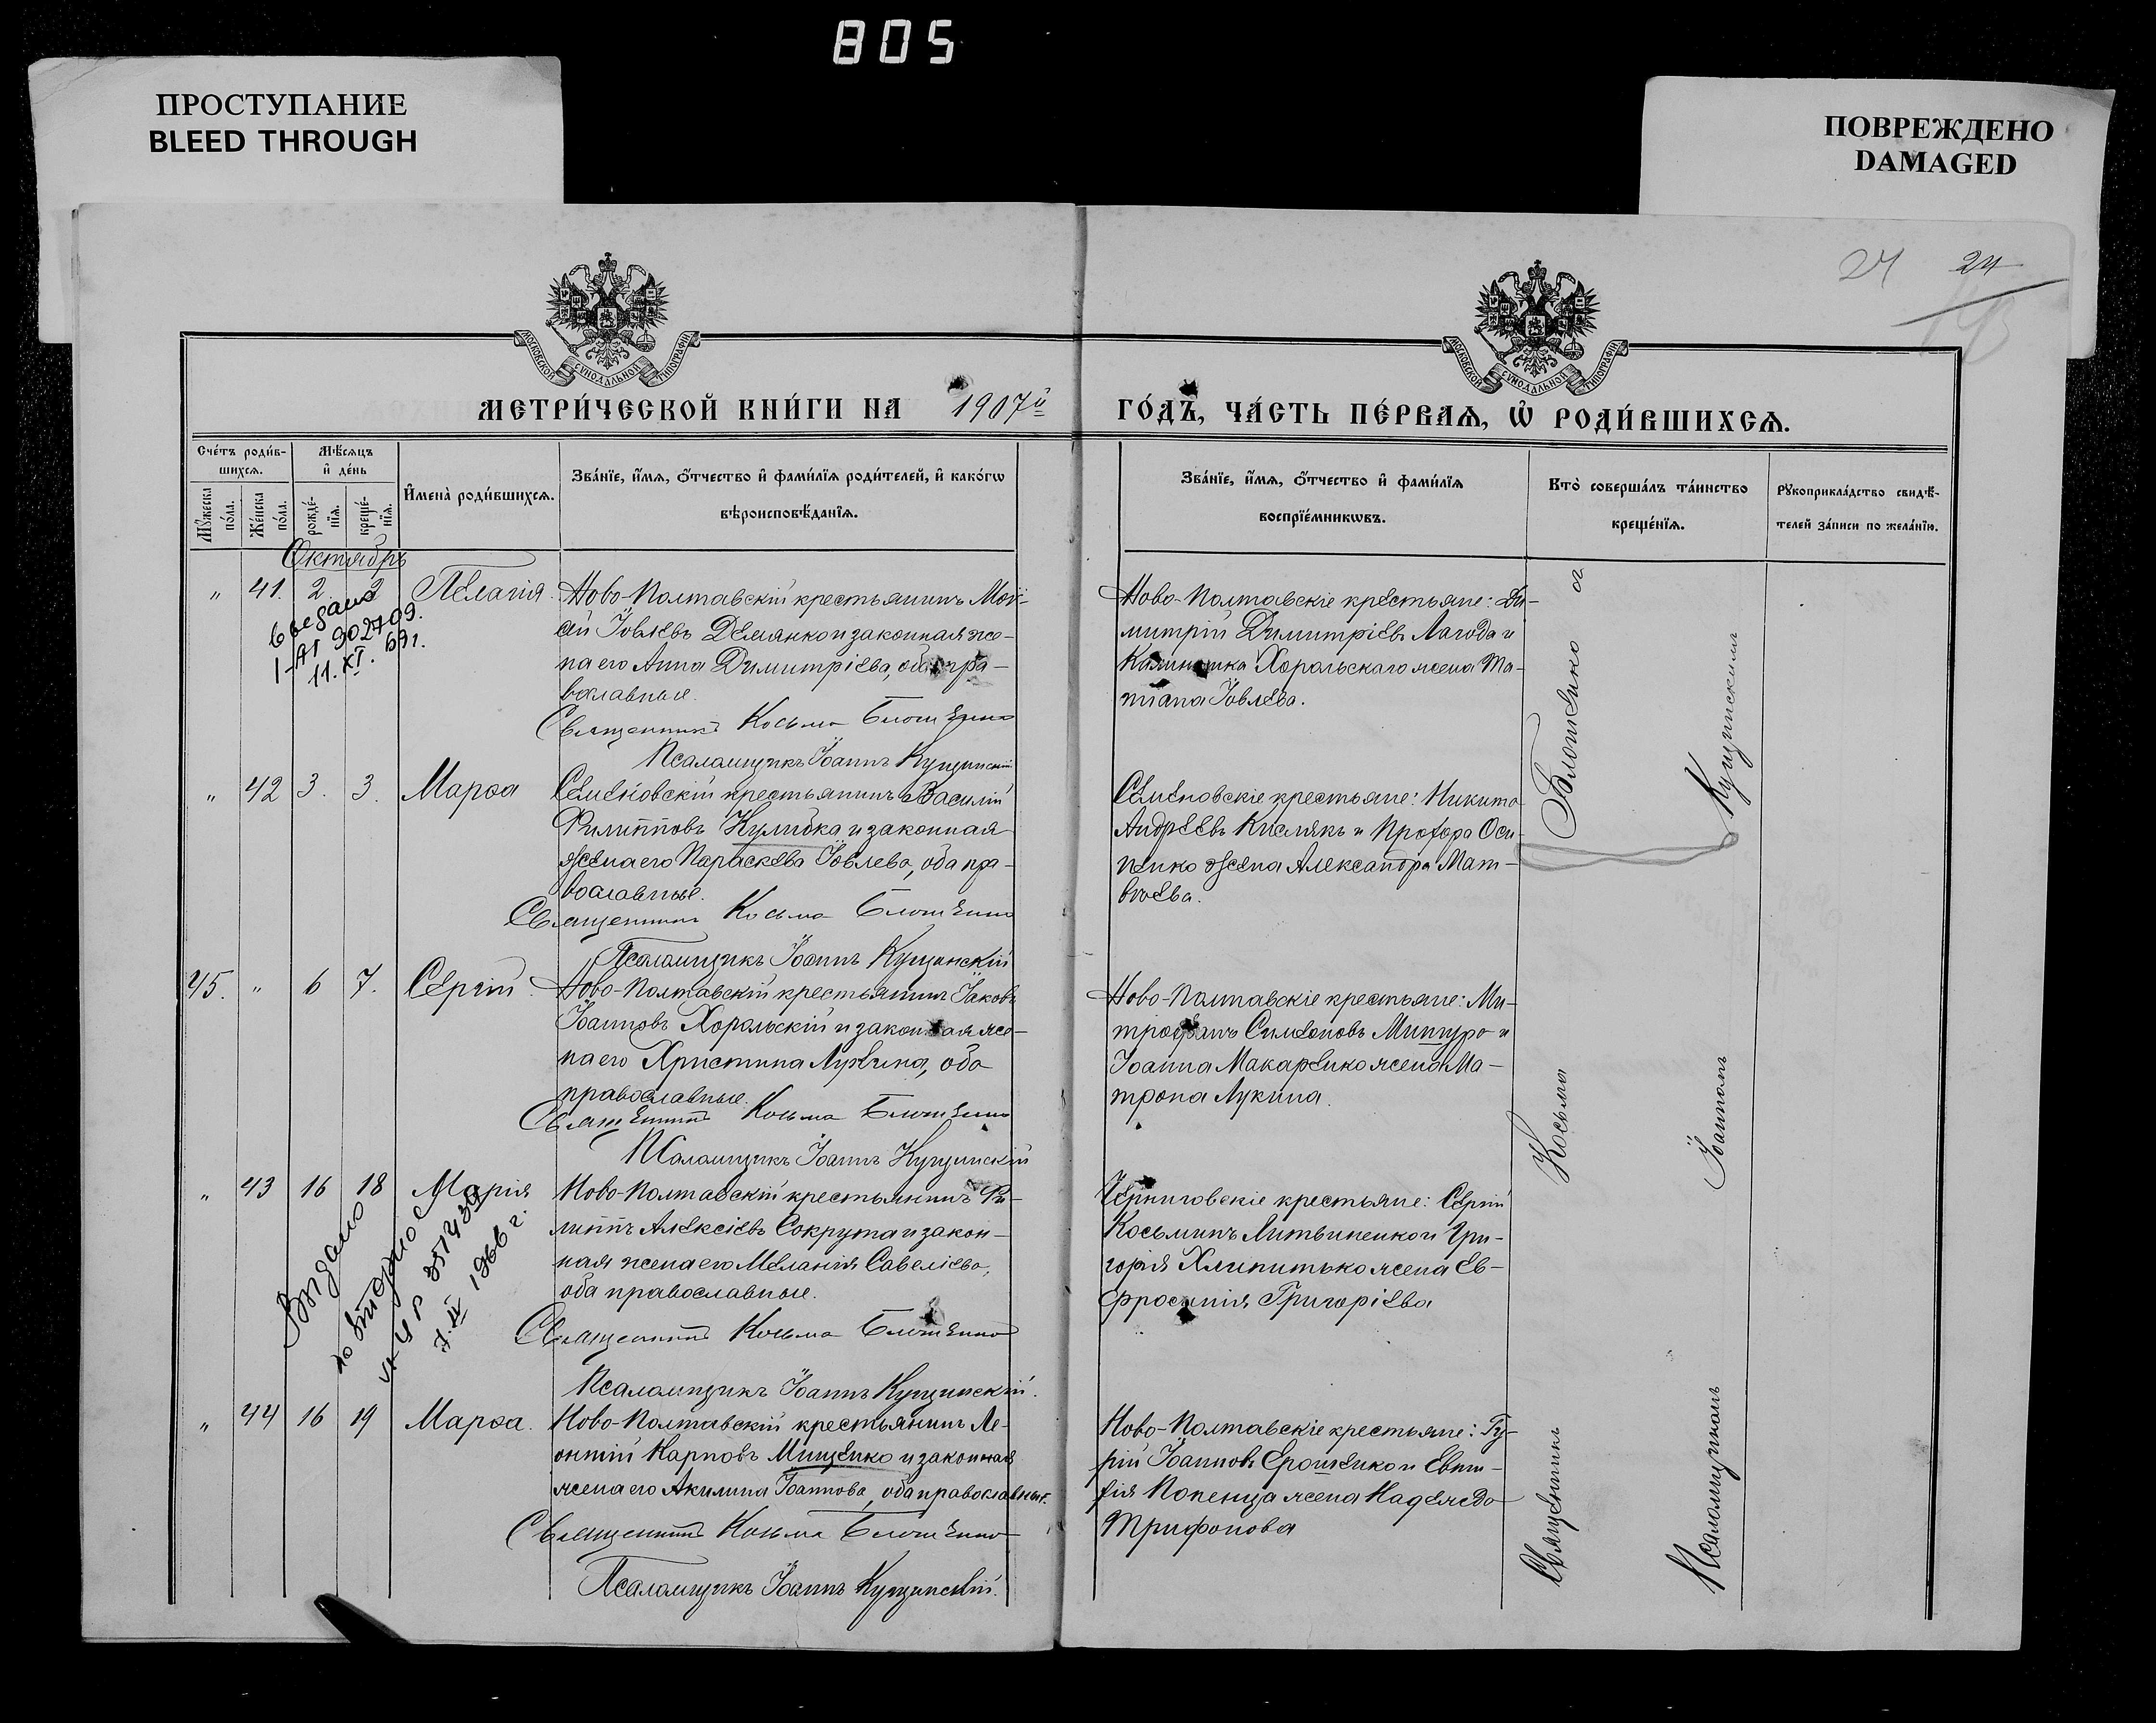 805
ПРОСТУПАНИЕ
BLEED THROUGH
ПОВРЕЖДЕНО
DAMAGED
24 24
МОСКОВСКОЙ СѴНОДАЛЬНОЙ ТИПОГРАФІИ
МОСКОВСКОЙ СѴНОДАЛЬНОЙ ТИПОГРАФІИ
МЕТРИ́ЧЕСКОЙ КНИ́ГИ НА 1907й
ГО́ДЪ, ЧА́СТЬ ПЕ́РВАѦ, Ѡ҆ РОДИ́ВШИХСѦ.
Сче́тъ роди́в-
шихсѧ.
Мѣ́сѧцъ
и҆ де́нь
Мꙋ́жеска
по́ла.
Же́нска
по́ла.
рожде́-
нїѧ.
креще́-
нїѧ.
И҆мена̀ роди́вшихсѧ.
Зва́нїе, и҆́мѧ, ѻ҆́тчество и҆ фами́лїѧ роди́телей, и҆ како́гѡ
вѣроисповѣ́данїѧ.
Зва́нїе, и҆́мѧ, ѻ҆́тчество и҆ фами́лїѧ
воспрїе́мникѡвъ.
Кто̀ соверша́лъ та́инство
креще́нїѧ.
Рꙋкоприкла́дство свидѣ́-
телей за́писи по жела́нїю.
Октябрь
" 41. 2. 2 Пелагія.
Ново-Полтавскій крестьянинъ Мои-
сей Іовлевъ Демянко и законная же-
на его Анна Димитріева, оба пра-
вославные.
Священникъ Косьма Блошенко
Псаломщикъ Іоаннъ Кущинскій
Ново-Полтавскіе крестьяне: Ди-
митрій Димитріевъ Лагода и
Хорольскаго жена Та-
тіана Іовлева.
I-АП 902709.
11.XI.
" 42 3. 3. Марѳа
Семеновскій крестьянинъ Василій
Филипповъ Кулибка и законная
жена его Параскева Іовлева, оба пра-
вославные.
Священникъ Косьма Блошенко
Псаломщикъ Іоаннъ Кущинскій
Семеновскіе крестьяне: Никита
Андреевъ Кислякъ и Прохора Оси-
пенко жена Александра Мат-
вѣева.
45. " 6 7. Сергій.
Ново-Полтавскій крестьянинъ Іаковъ
Іоанновъ Хорольскій и законная же-
на его Христина Лукина, оба
православные.
Священникъ Косьма Блошенко
Псаломщикъ Іоаннъ Кущинскій
Ново-Полтавскіе крестьяне: Ми-
трофанъ Симеоновъ Мишуро и
Іоанна Макаренко жена Ма-
трона Лукина.
" 43 16 18 Марія
Ново-Полтавскій крестьянинъ Фи-
липпъ Алексіевъ Сокрута и закон-
ная жена его Меланія Савеліева,
оба православные.
Священникъ Косьма Блошенко
Псаломщикъ Іоаннъ Кущинскій.
Черниговскіе крестьяне: Сергій
Косьминъ Литвиненко и Гри-
горія Хлипитько жена Ев-
фросинія Григоріева
Выдано
повторное
7.IV 1966 г.
" 44 16 19 Марѳа.
Ново-Полтавскій крестьянинъ Ле-
онтій Карповъ Мищенко и законная
жена его Акилина Іоаннова, оба православные.
Священникъ Косьма Блошенко
Псаломщикъ Іоаннъ Кущинскій.
Ново-Полтавскіе крестьяне: Гу-
рій Іоанновъ Ерошенко и Евти-
хія Копенца жена Надежда
Трифонова
Священникъ Косьма Блошенко съ
Псаломщикомъ Іоанномъ Кущинскимъ